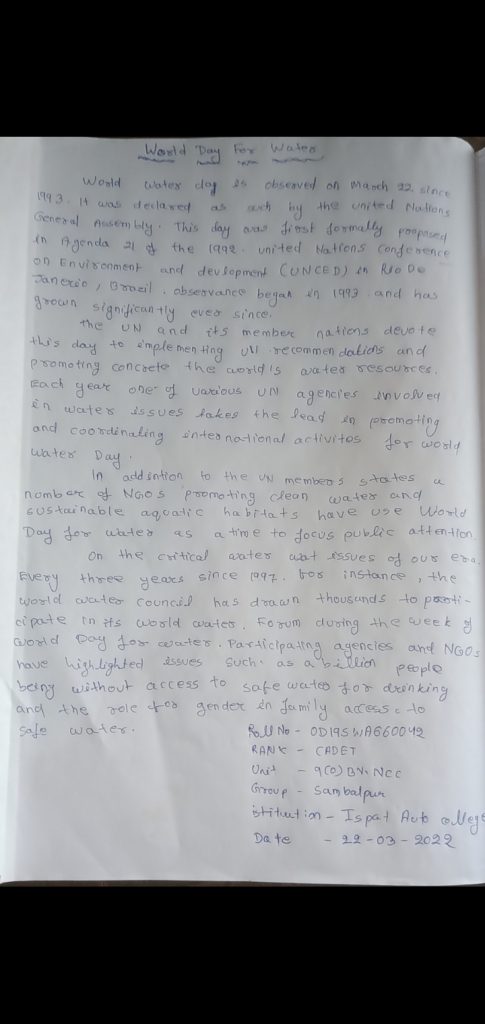 World Day For Water
World water day is observed on March 22, since
1993. It was declared as such by the united Nations
General Assembly. This day was first formally proposed
in Agenda 21 of the 1992. united Nations Conference
on Environment and devlopment (UNCED) in Rio De
Janerio, Brazil. observance began in 1993 and has
grown significantly ever since.
the UN and its member nations devote
this day to implementing UN recommendations and
promoting concrete the world is water resources.
Each year one of various UN agencies involved
in water issues takes the lead in promoting
and coordinating international activitos for world
water Day.
In addintion to the UN members states a
nomber of NGOs promoting clean water and
sustainable aquatic habitats have use World
Day for water as a time to focus public attention
on the critical water wat issues of our era.
Every three years since 1997. for instance, the
world water council has drawn thousands to parti-
cipate in its world water. Forum during the week of
World Day for water. Participating agencies and NGOs
have highlighted issues such as a billion people
being without access to safe water for drinking
and the role for gender in family access to
safe water.
Roll No - OD19SWA660042
RANK - CADET
Unit - 9(O) BN. NCC
Group - Sambalpur
istitution - Ispat Auto college
Date - 22-03-2022